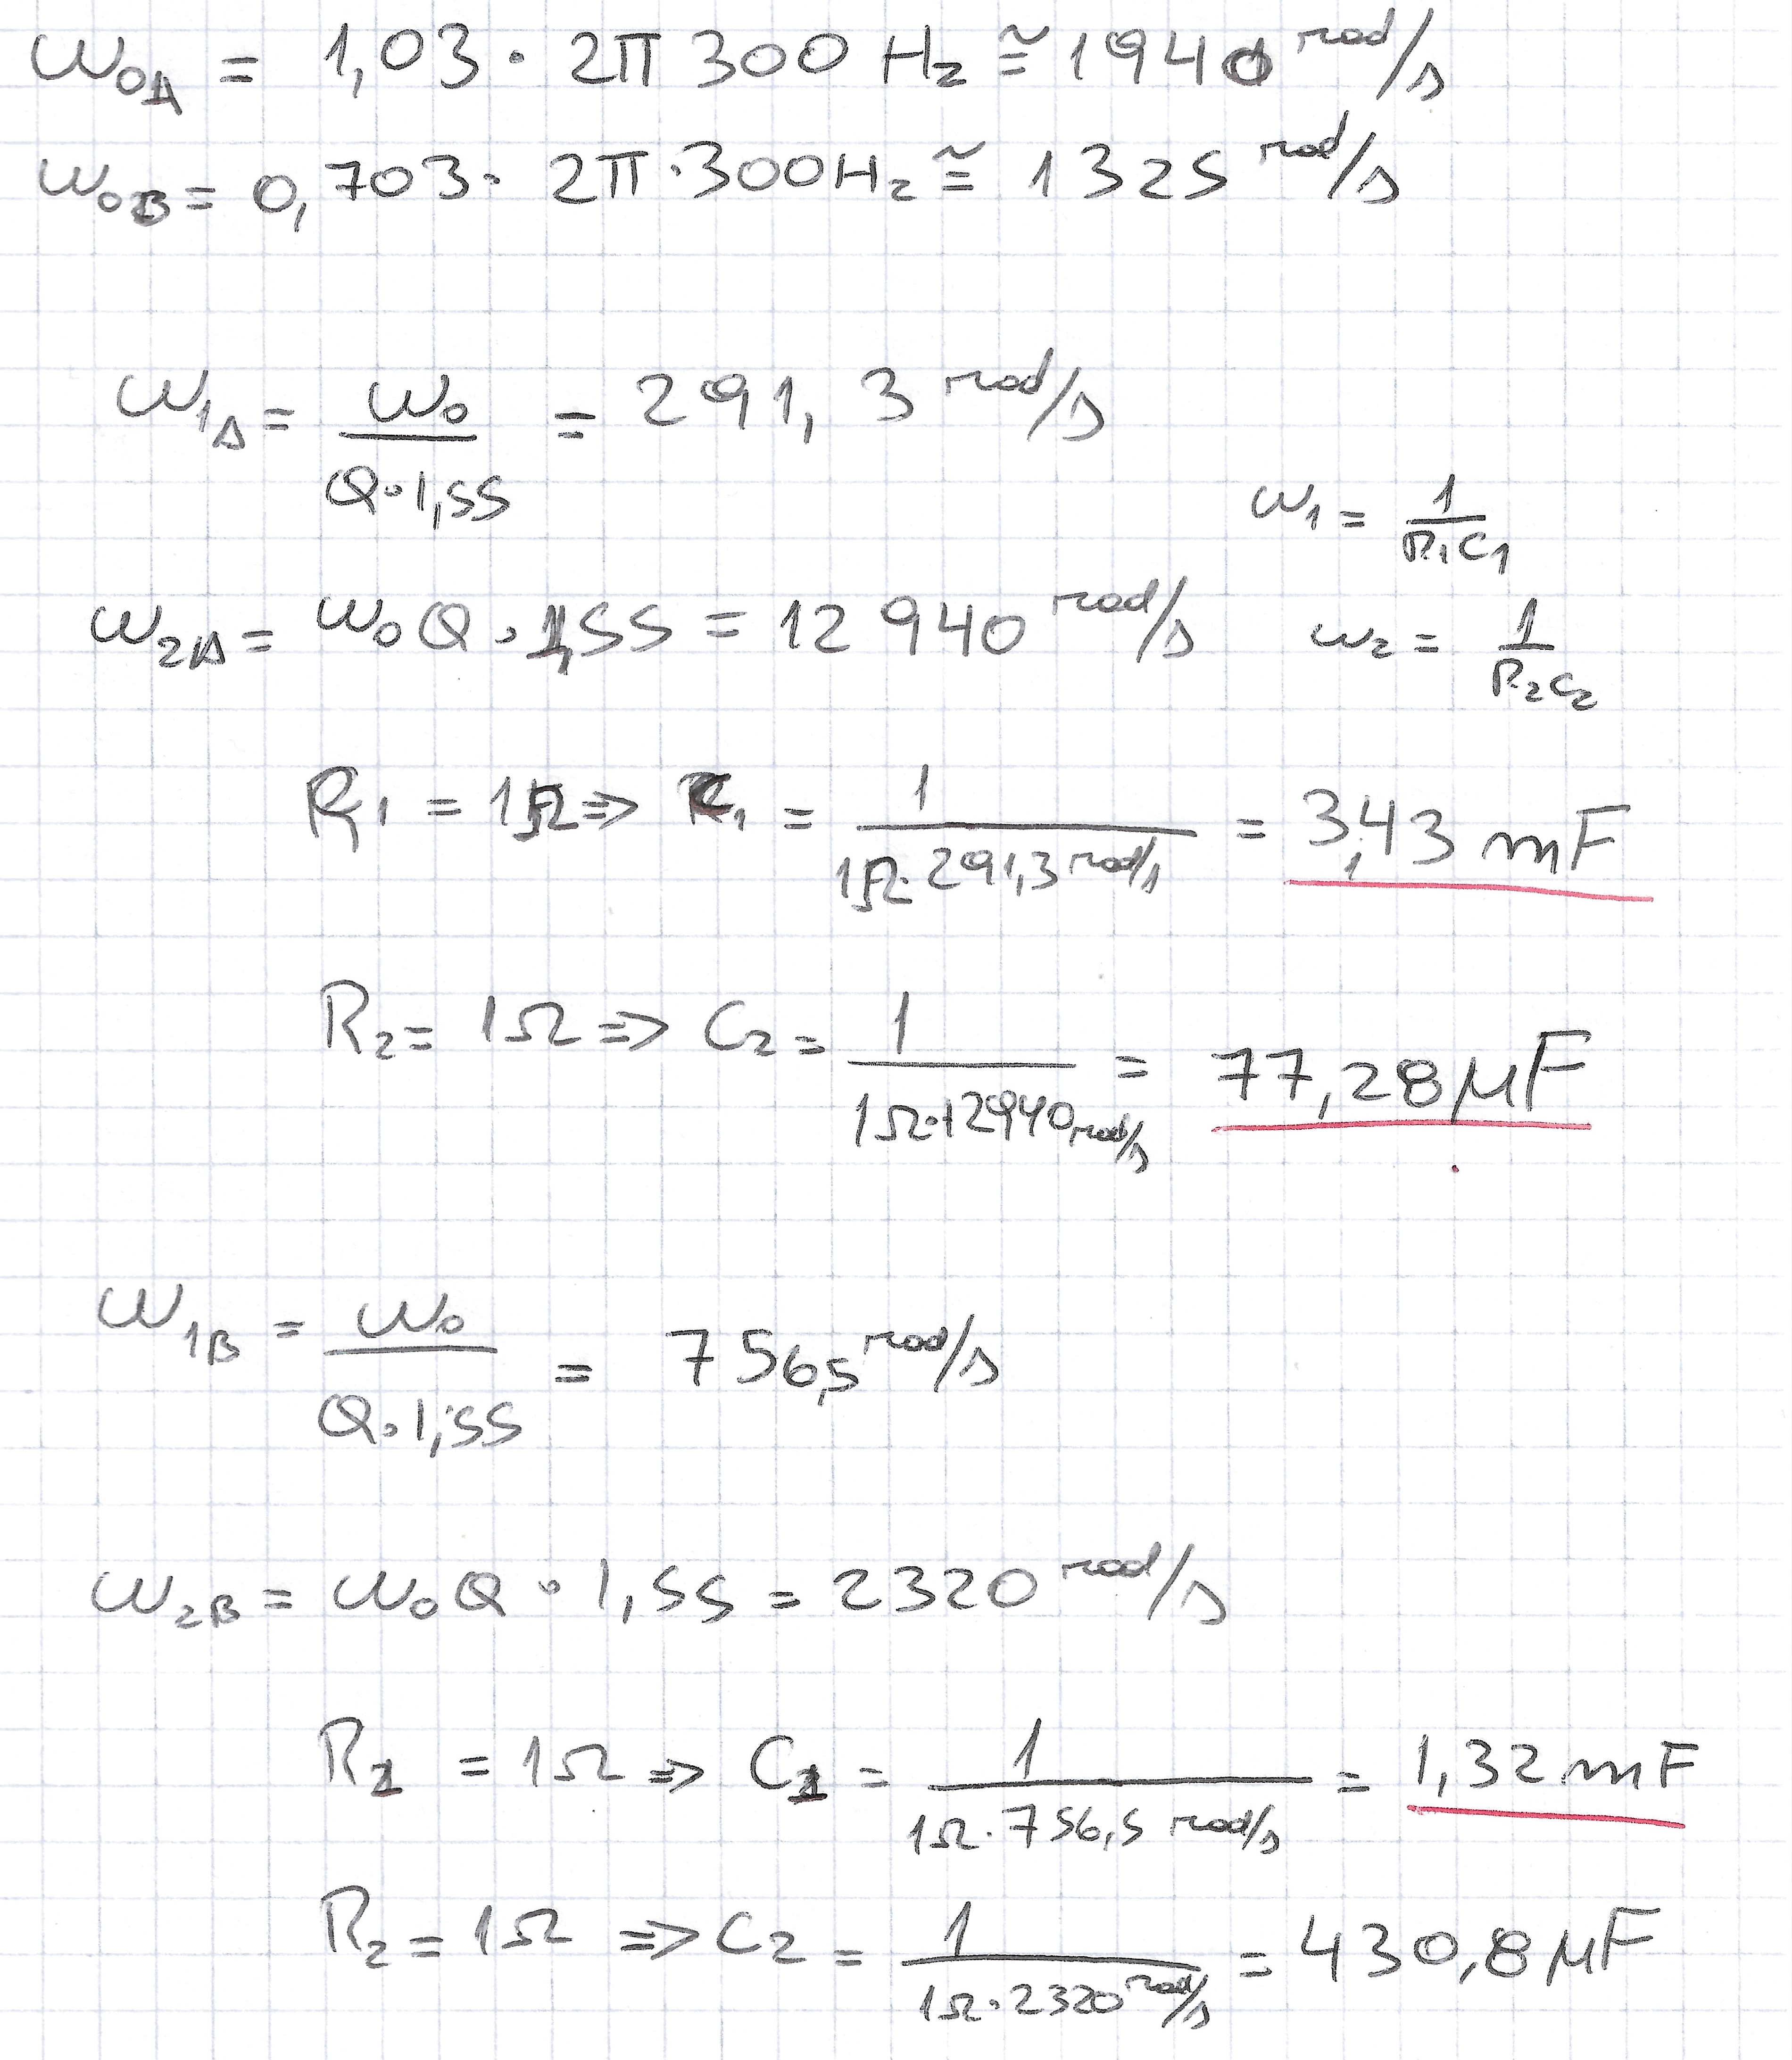 ω0A = 1,03 · 2π 300 Hz ≅ 1940 rad/s
ω0B = 0,703 · 2π · 300Hz ≅ 1325 rad/s
ω1A = ω0 / Q·1,55 = 291,3 rad/s
ω1 = 1 / R1C1
ω2A = ω0 Q · 1,55 = 12 940 rad/s
ω2 = 1 / R2C2
R1 = 1Ω => C1 = 1 / 1Ω · 291,3 rad/s = 3,43 mF
R2 = 1Ω => C2 = 1 / 1Ω·12940 rad/s = 77,28 μF
ω1B = ω0 / Q·1,55 = 756,5 rad/s
ω2B = ω0Q · 1,55 = 2320 rad/s
R1 = 1Ω => C1 = 1 / 1Ω · 756,5 rad/s = 1,32 mF
R2 = 1Ω => C2 = 1 / 1Ω · 2320 rad/s = 430,8 μF